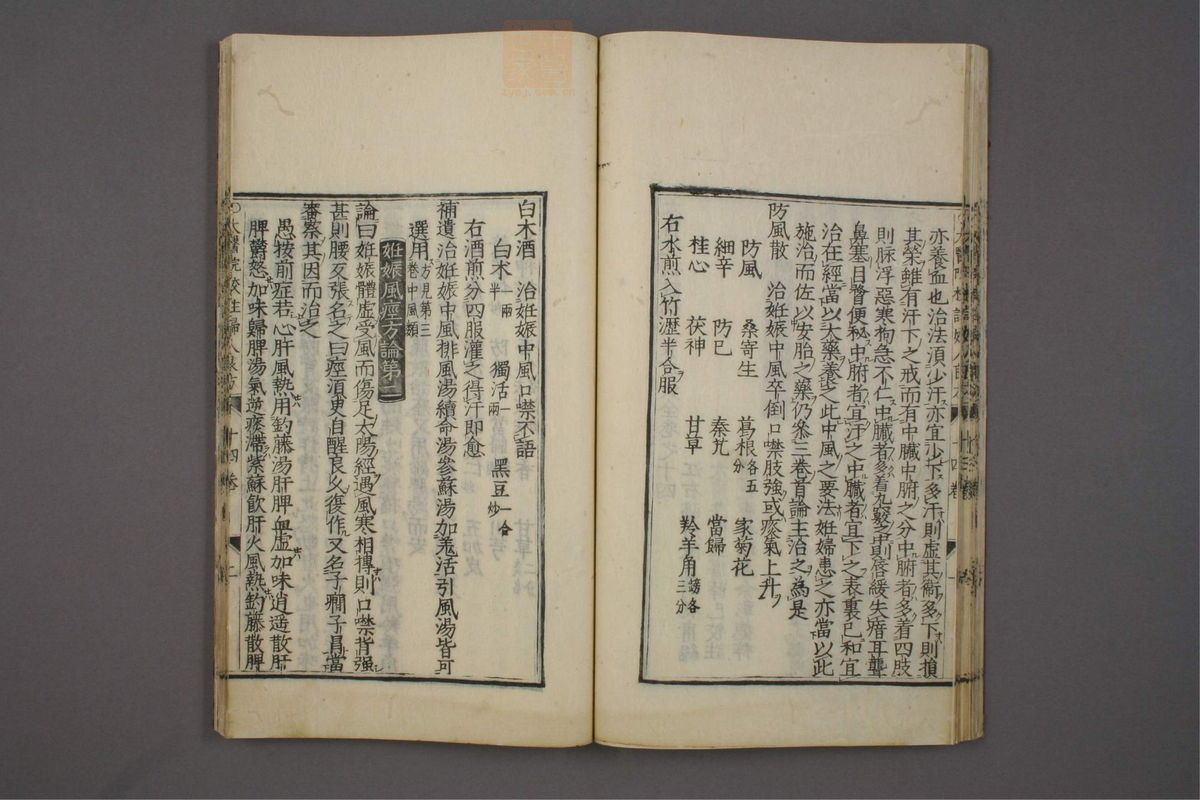 亦養血也治法須少汗亦宜少下多汗則虛其衛多下則損
其榮雖有汗下之戒而有中臟中腑之分中腑者多着四肢
則脉浮惡寒拘急不仁中臟者多着九竅則唇緩失瘖耳聾
鼻塞目瞀便秘中腑者宜汗之中臟者宜下之表裏已和宜
治在經當以大藥養之此中風之要法妊婦患之亦當以此
施治而佐以安胎之藥仍叅三卷首論主治之為是
防風散 治妊娠中風卒倒口噤肢強或痰氣上升
防風 桑寄生 葛根各五分 家菊花
細辛 防已 秦艽 當歸
桂心 茯神 甘草 羚羊角鎊各三分
右水煎入竹瀝半合服
白木酒 治妊娠中風口噤不語
白木半兩 獨活一兩 黑豆一合炒
右酒煎分四服灌之得汗即愈
補遺治妊娠中風排風湯續命湯參蘇湯加羗活引風湯皆可
選用方見第三卷中風類
妊娠風痙方論第二
論曰妊娠體虛受風而傷足太陽經遇風寒相摶則口噤背强
甚則腰反張名之曰痙須臾自醒良久復作又名子癇子冒當
審察其因而治之
愚按前症若心肝風熱用釣藤湯肝脾血虛加味逍遙散肝
脾欝怒加味歸脾湯氣逆痰滯紫蘇飲肝火風熱釣藤散脾
太醫院校注婦人良方 十四卷 二